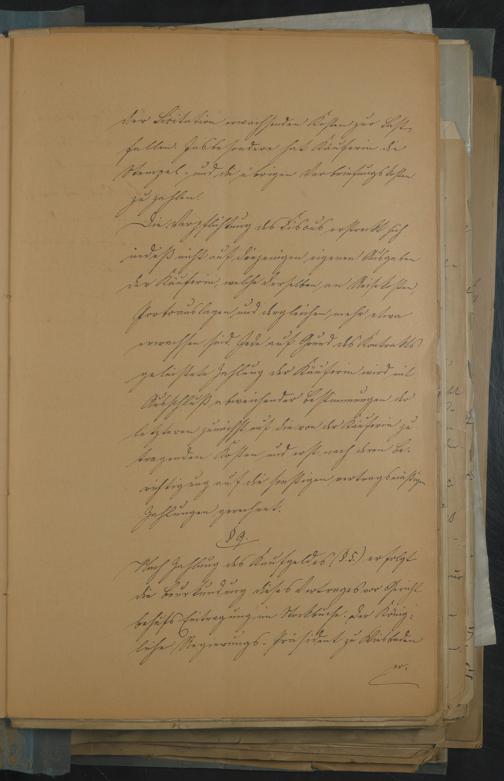 der Licitation erwachsenden Kosten zur Last
fallen. Insbesondere hat Käuferin die
Stempel- und die übrigen Verbriefungskosten
zu zahlen.
Die Verpflichtung des Fiskus erstreckt sich
indeß nicht auf diejenigen eigenen Ausgaben
der Käuferin, welche derselben an Reisekosten
Portoauslagen und dergleichen mehr etwa
erwachsen sind. Jede auf Grund des Kontrakts
geleistete Zahlung der Käuferin wird mit
Ausschluß abweichender Bestimmungen der
letzteren zunächst auf die von der Käuferin zu
tragenden Kosten und erst nach deren Be-
richtigung auf die sonstigen vertragsmäßigen
Zahlungen gerechnet.
§ 9.
Nach Zahlung des Kaufgeldes (§ 5.) erfolgt
die Beurkundung dieses Vertrages vor Gericht
behufs Eintragung im Stockbuche. Der König-
liche Regierungs-Präsident zu Wiesbaden